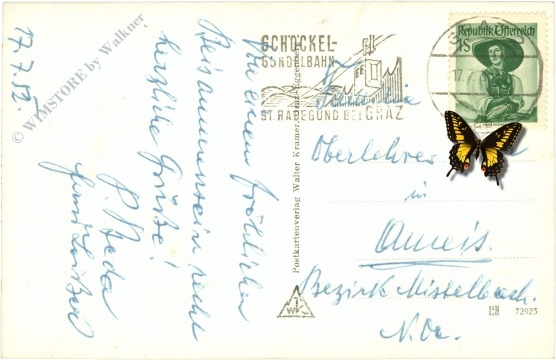 17.7.52.
Von einem fröhlichen
Beisammensein recht
herzliche Grüße!
© WIMSTORE by Walkner
SCHÖCKEL-
GONDELBAHN
ST. RADEGUND BEI GRAZ
Republik Österreich
1S
17.7.
Oberlehrer
in
Ameis.
Bezirk Mistelbach.
N.Oe.
Postkartenverlag Walter Kramer, Graz-Eggenberg
WK
72923